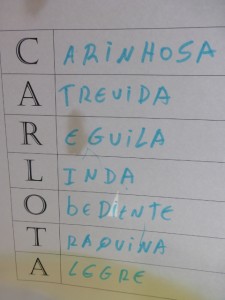 C ARINHOSA
A TREVIDA
R EGUILA
L INDA
O bEDIENTE
T RAQUINA
A LEGRE